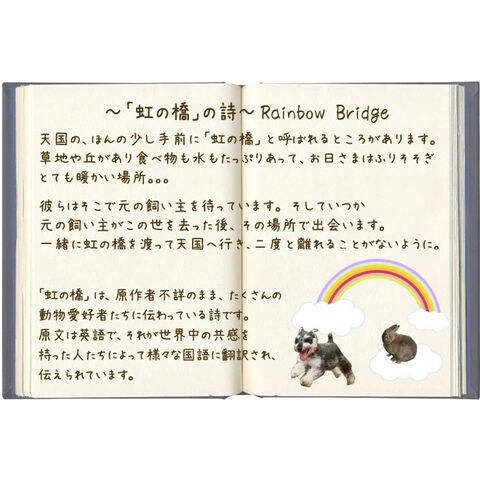 ～「虹の橋」の詩～ Rainbow Bridge
天国の、ほんの少し手前に「虹の橋」と呼ばれるところがあります。
草地や丘があり食べ物も水もたっぷりあって、お日さまはふりそそぎ
とても暖かい場所。。。
彼らはそこで元の飼い主を待っています。そしていつか
元の飼い主がこの世を去った後、その場所で出会います。
一緒に虹の橋を渡って天国へ行き、二度と離れることがないように。
「虹の橋」は、原作者不詳のまま、たくさんの
動物愛好者たちに伝わっている詩です。
原文は英語で、それが世界中の共感を
持った人たちによって様々な国語に翻訳され、
伝えられています。